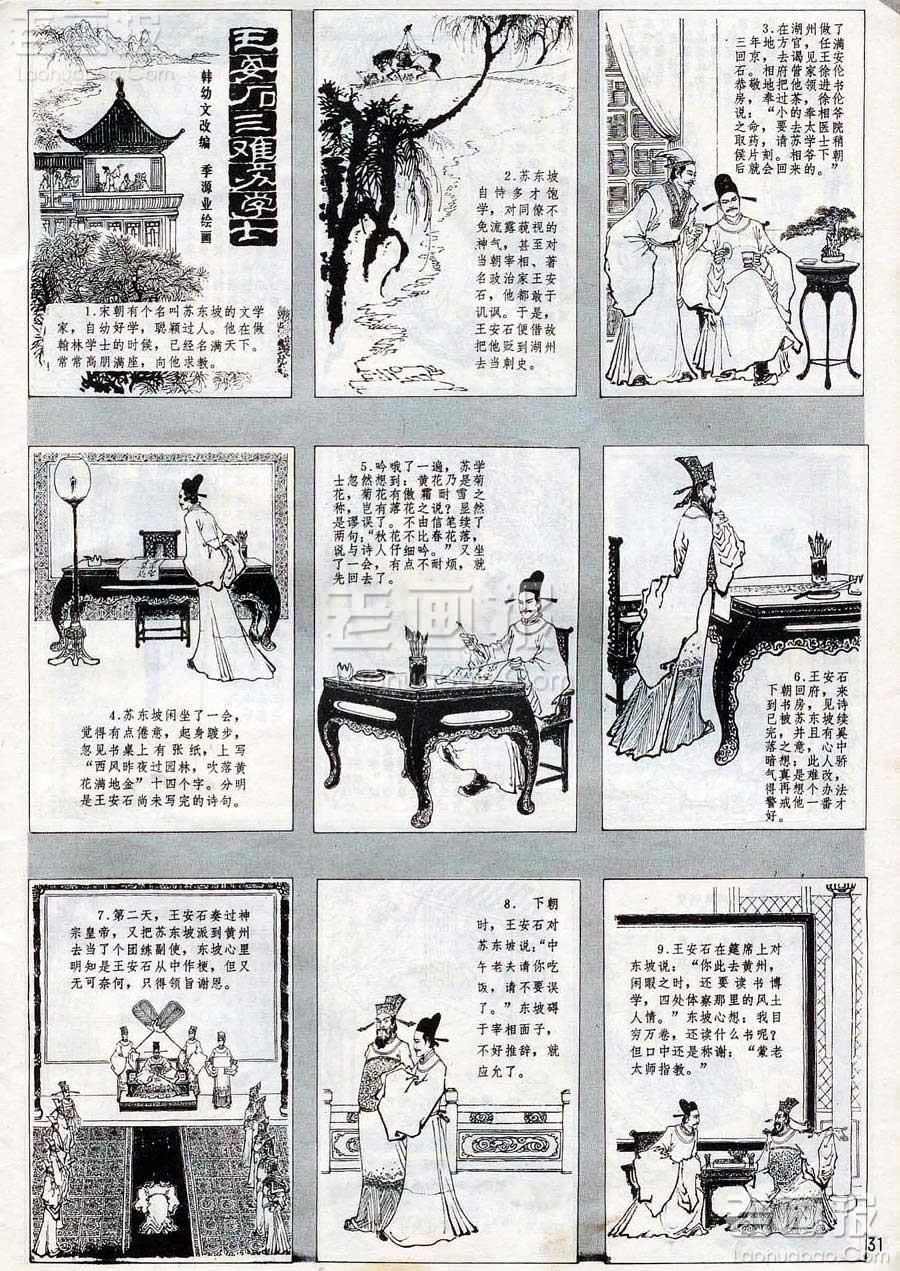 老画报
Laohuabao.Com
王安石三难苏学士
韩幼文改编 季源业绘画
1.宋朝有个名叫苏东坡的文学
家，自幼好学，聪颖过人。他在做
翰林学士的时候，已经名满天下。
常常高朋满座，向他求教。
2.苏东坡
自恃多才饱
学，对同僚不
免流露藐视的
神气，甚至对
当朝宰相、著
名政治家王安
石，他都敢于
讥讽。于是，
王安石便借故
把他贬到湖州
去当刺史。
3.在湖州做了
三年地方官，任满
回京，去谒见王安
石。相府管家徐伦
恭敬地把他领进书
房，奉过茶，徐伦
说：“小的奉相爷
之命，要去太医院
取药，请苏学士稍
侯片刻。相爷下朝
后就会回来的。”
4.苏东坡闲坐了一会，
觉得有点倦意，起身踱步，
忽见书桌上有张纸，上写
“西风昨夜过园林，吹落黄
花满地金”十四个字。分明
是王安石尚未写完的诗句。
5.吟哦了一遍，苏学
士忽然想到：黄花乃是菊
花，菊花有傲霜耐雪之
称，岂有落花之说？显然
是谬误了。不由信笔续了
两句：“秋花不比春花落，
说与诗人仔细吟。”又坐
了一会，有点不耐烦，就
先回去了。
老画报
Laohuabao.Com
6.王安石
下朝回府，来
到书房，见诗
已被苏东坡续
完，并且有奚
落之意，心中
暗想：此人骄
气真是难改，
得再想个办法
警戒他一番才
好。
7.第二天，王安石奏过神
宗皇帝，又把苏东坡派到黄州
去当了个团练副使，东坡心里
明知是王安石从中作梗，但又
无可奈何，只得领旨谢恩。
8.下朝
时，王安石对
苏东坡说：“中
午老夫请你吃
饭，请不要误
了。”东坡碍
于宰相面子，
不好推辞，就
应允了。
9.王安石在筵席上对
东坡说：“你此去黄州，
闲暇之时，还要读书博
学，四处体察那里的风土
人情。”东坡心想：我目
穷万卷，还读什么书呢？
但口中还是称谢：“蒙老
太师指教。”
老画报
Laohuabao.Com
31